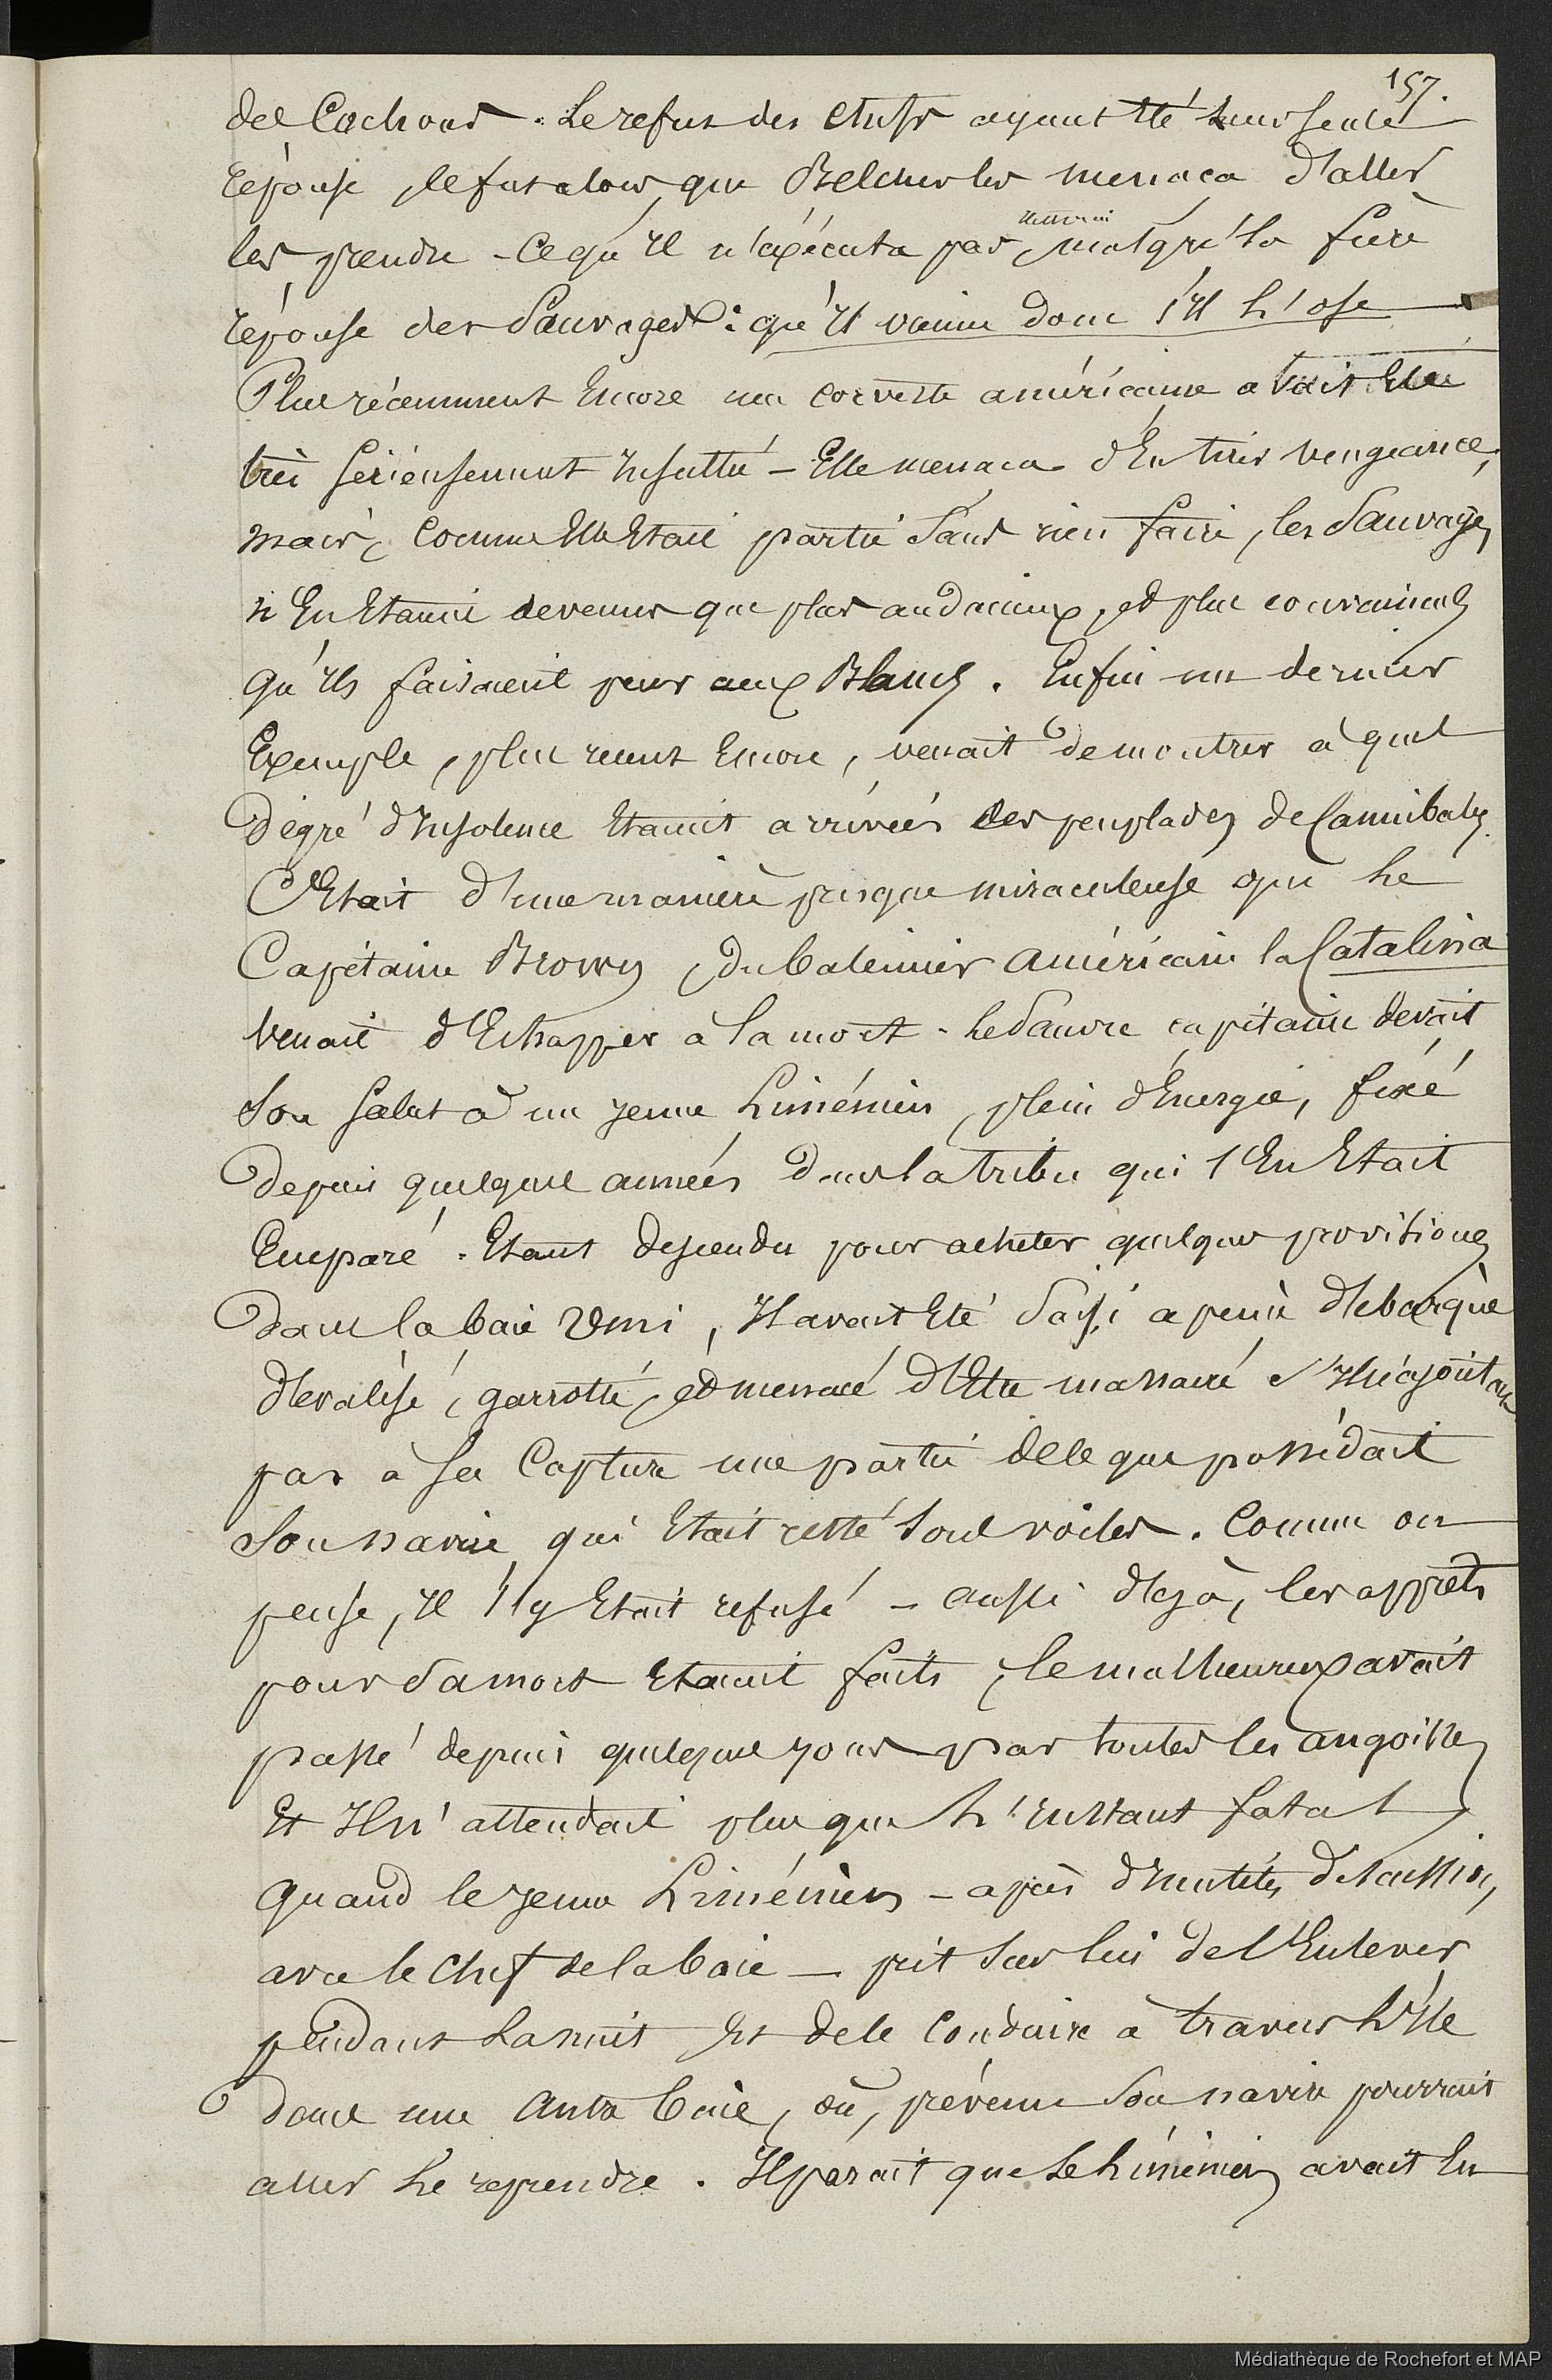 157.
des Cochons. Le refus des chefs ayant été leur seule
réponse, ce fut alors que Belcher les menaça d'aller
les prendre - Ce qu'il n'exécuta pas, malgré la fière
réponse des Sauvages: qu'il vienne donc s'il l'ose
Plus récemment Encore une corvette américaine avait Eté
très sérieusement Insultée - Elle menaça d'En tirer vengeance,
mais, comme Elle Etait partie sans rien faire, les Sauvages
n'En Etaient devenus que plus audacieux, et plus convaincus
qu'Ils faisaient peur aux Blancs. Enfin un dernier
Exemple, plus récent Encore, venait de montrer à quel
dégré d'Insolence Etaient arrivées ces peuplades de Cannibales.
C'Etait d'une manière presque miraculeuse que le
Capitaine Brown, du baleinier américain la Catalina
venait d'Echapper à la mort. Le pauvre capitaine devait
son salut à un jeune Liménien, plein d'Energie, fixé
depuis quelques années dans la tribu qui s'En Etait
Emparé. Etant descendu pour acheter quelques provisions
dans la baie Vemi, Il avait Eté saisi à peine débarqué
dévalisé, garrotté, et menacé d'Etre massacré s'Il n'ajoutait
pas à sa Capture une partie de ce que possédait
son navire qui Etait resté sous voiles. Comme on
pense, Il s'y Etait refusé - aussi déjà, les apprêts
pour sa mort Etaient faits, le malheureux avait
passé depuis quelques jours par toutes les angoisses
Et Il n'attendait plus que l'Instant fatal,
quand le jeune Liménien - après d'Inutiles discussions,
avec le chef de la baie - prit sur lui de l'Enlever
pendant la nuit Et de le Conduire à travers l'Ile
dans une autre baie, où, prévenu son navire pourrait
aller le reprendre. Il paraît que le Liménien avait En